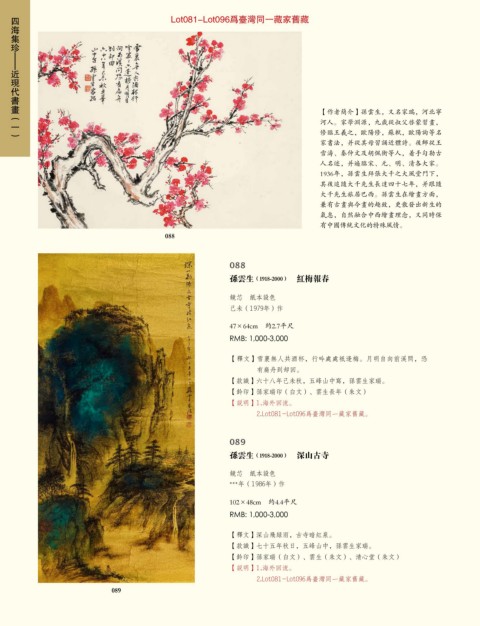 Lot081-Lot096爲臺灣同一藏家舊藏
四海集珍——近現代書畫（一）
【作者簡介】孫雲生，又名家瑞，河北寧
河人。家學淵源，九歲從叔父孫蒙習畫，
修顏王羲之，歐陽修，蘇軾，歐陽詢等名
家書法，并從其母習誦近體詩。後師從王
雪濤、秦仲文及胡佩衡等人，着手勾勒古
人名迹，并遍臨宋、元、明、清各大家。
1936年，孫雲生拜張大千之大風堂門下，
其後追隨大千先生長達四十七年，并跟隨
大千先生旅居巴西。孫雲生在繪畫方面，
兼有古畫與今畫的趣致，更散發出新生的
氣息，自然融合中西繪畫理念，又同時保
有中國傳統文化的特殊風情。
088
088
孫雲生（1918-2000） 紅梅報春
鏡芯 紙本設色
己未（1979年）作
47×64cm 約2.7平尺
RMB: 1,000-3,000
【釋文】雪裏無人共酒杯，行吟處處祇邊梅。月明自向前溪問，恐
有扁舟到却洄。
【款識】六十八年己未秋，五峰山中寫，孫雲生家瑞。
【鈐印】孫家瑞印（白文）、雲生長年（朱文）
【說明】1.海外回流。
2.Lot081-Lot096爲臺灣同一藏家舊藏。
089
孫雲生（1918-2000） 深山古寺
鏡芯 紙本設色
***年（1986年）作
102×48cm 約4.4平尺
RMB: 1,000-3,000
【釋文】深山飛細雨，古寺暗紅泉。
【款識】七十五年秋日，五峰山中，孫雲生家瑞。
【鈐印】孫家瑞（白文）、雲生（朱文）、清心堂（朱文）
【說明】1.海外回流。
2.Lot081-Lot096爲臺灣同一藏家舊藏。
089